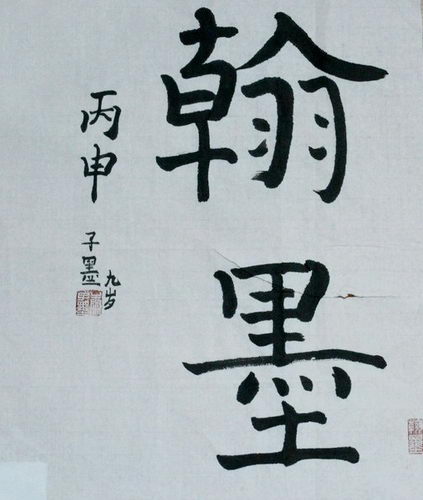 翰墨
丙申
子墨九岁